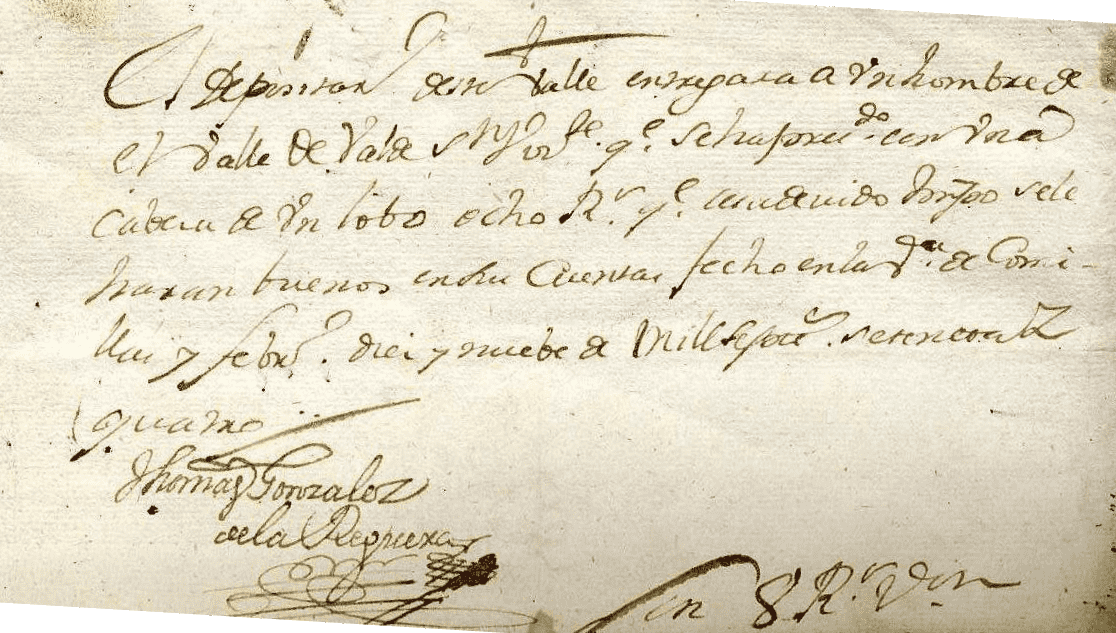 El Depositar.º deste Valle entregara a Vn hombre de
el Valle de Valde S.n Vz.te q.e se ha pres.do con Vna
Cabeza de Vn lobo ocho R.s q.e
haran buenos en su Cuenta, fecho en la V.a de Comi-
llas y febr.º diez y nuebe de Mill septe.s setenta y
quatro
Thomas Gonzalez
de la Reguera
Son 8 R.s Von